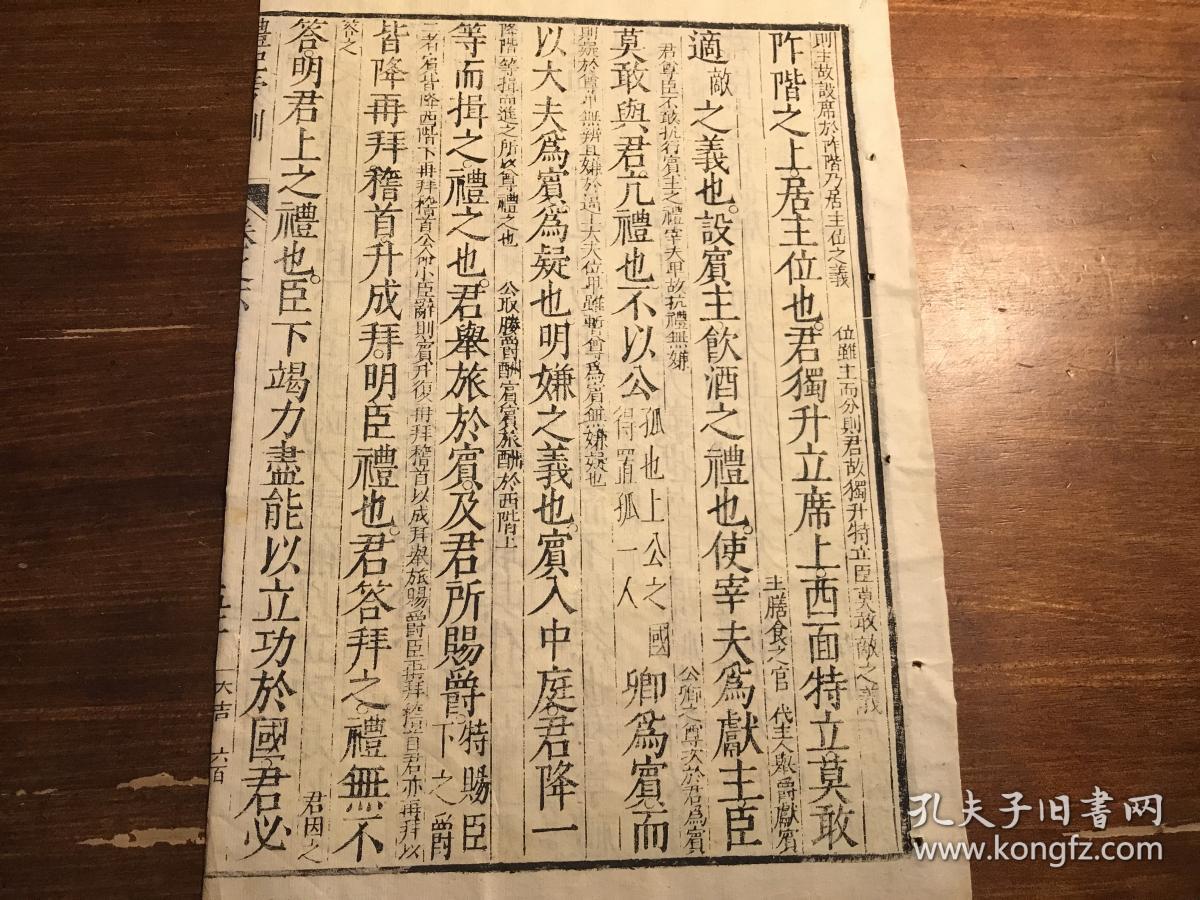 則主故設席於阼階乃居主位之義 位雖主而分則君故獨升特立臣莫敢敵之義
阼階之上居主位也君獨升立席上西面特立莫敢
主膳食之官 代主人舉爵獻賓
適敵之義也設賓主飲酒之禮也使宰夫為獻主臣
君尊臣不敢抗行賓主之禮宰夫卑故抗禮無嫌 公卿之尊次於君為賓
莫敢與君亢禮也不以公孤也上公之國得置孤一人卿為賓而
則疑於尊卑無辨且嫌於逼上大夫位卑雖暫尊為賓無嫌疑也
以大夫為賓為疑也明嫌之義也賓入中庭君降一
降階等揖而進之所以尊禮之也 公取媵爵酬賓賓旅酬於西階上
等而揖之禮之也君舉旅於賓及君所賜爵特賜臣下之爵
二者賓皆降西階下再拜稽首公命小臣辭則賓升復再拜稽首以成拜舉旅賜爵臣再拜稽首君亦再拜以
皆降再拜稽首升成拜明臣禮也君答拜之禮無不
答之 君因之
答明君上之禮也臣下竭力盡能以立功於國君必
大吉 六百
孔夫子旧書网
www.kongfz.com